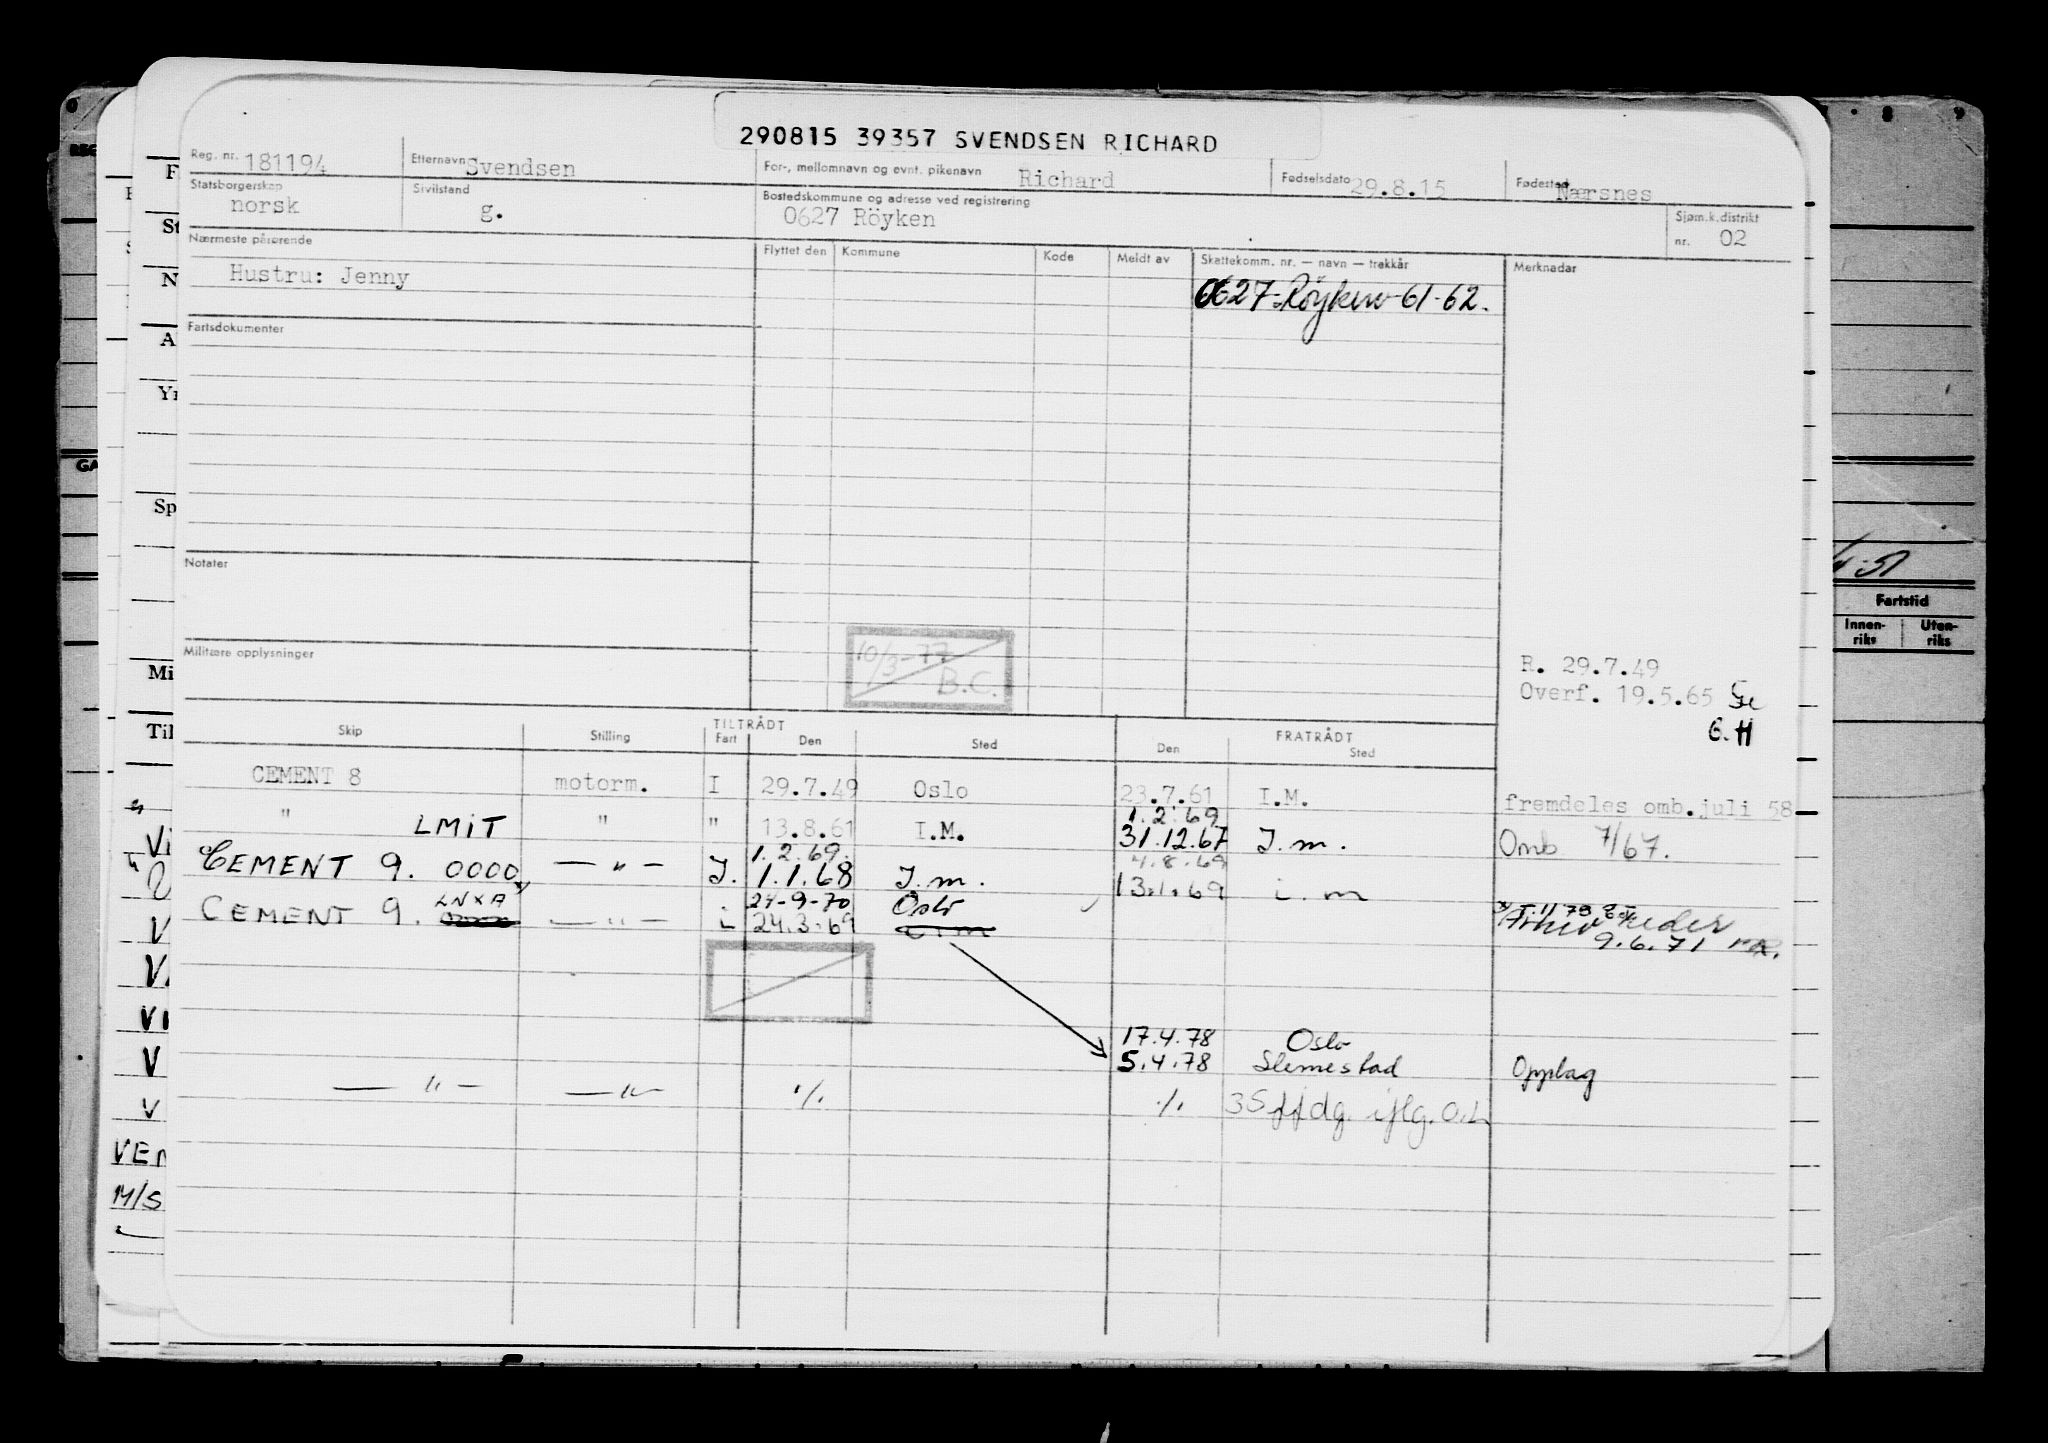 290815 39357 SVENDSEN RICHARD
Reg. nr. 181194 Etternavn Svendsen For-, mellomnavn og evnt. pikenavn Richard Fødselsdato 29.8.15 Fødested Nærsnes
Statsborgerskap norsk Sivilstand g. Bostedskommune og adresse ved registrering 0627 Röyken Sjøm.k.distrikt nr. 02
Nærmeste pårørende Flyttet den Kommune Kode Meldt av Skattekomm. nr. — navn — trekkår Merknader
Hustru: Jenny 0627-Röyken-61-62.
Fartsdokumenter
Notater
Militære opplysninger
10/3-77 B.C.
R. 29.7.49
Overf. 19.5.65
E.H
Skip Stilling TILTRÅDT Fart Den Sted FRATRÅDT Den Sted
CEMENT 8 motorm. I 29.7.49 Oslo 23.7.61 I.M. fremdeles omb.juli 58
1.2.69
" LMIT " " 13.8.61 I.M. 31.12.67 I.m. Omb 7/67.
1.2.69. 4.8.69
CEMENT 9. 0000 — " — I. 1.1.68 I.m. 13.1.69 i.m
LNXA 24-9-70 Oslo
CEMENT 9. — " — i 24.3.69
9.6.71
17.4.78 Oslo
5.4.78 Slemestad Opplag
— " — — " — ·/. ·/. 35 ffdg. iflg. O.L
Fartstid
Innen-riks Uten-riks
VI
VEN
M/S